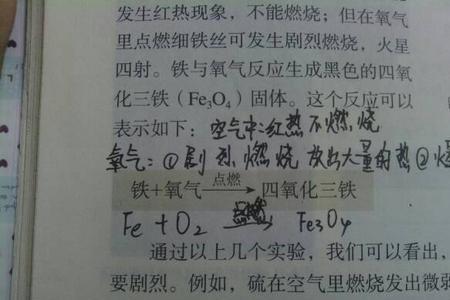 发生红热现象，不能燃烧；但在氧气
里点燃细铁丝可发生剧烈燃烧，火星
四射。铁与氧气反应生成黑色的四氧
化三铁（Fe₃O₄）固体。这个反应可以
表示如下：空气中:红热不燃烧
氧气：①剧烈燃烧 放出大量的热②
铁+氧气 点燃→ 四氧化三铁
Fe + O₂ 点燃 Fe₃O₄
通过以上几个实验，我们可以看出，
要剧烈。例如，硫在空气里燃烧发出微弱